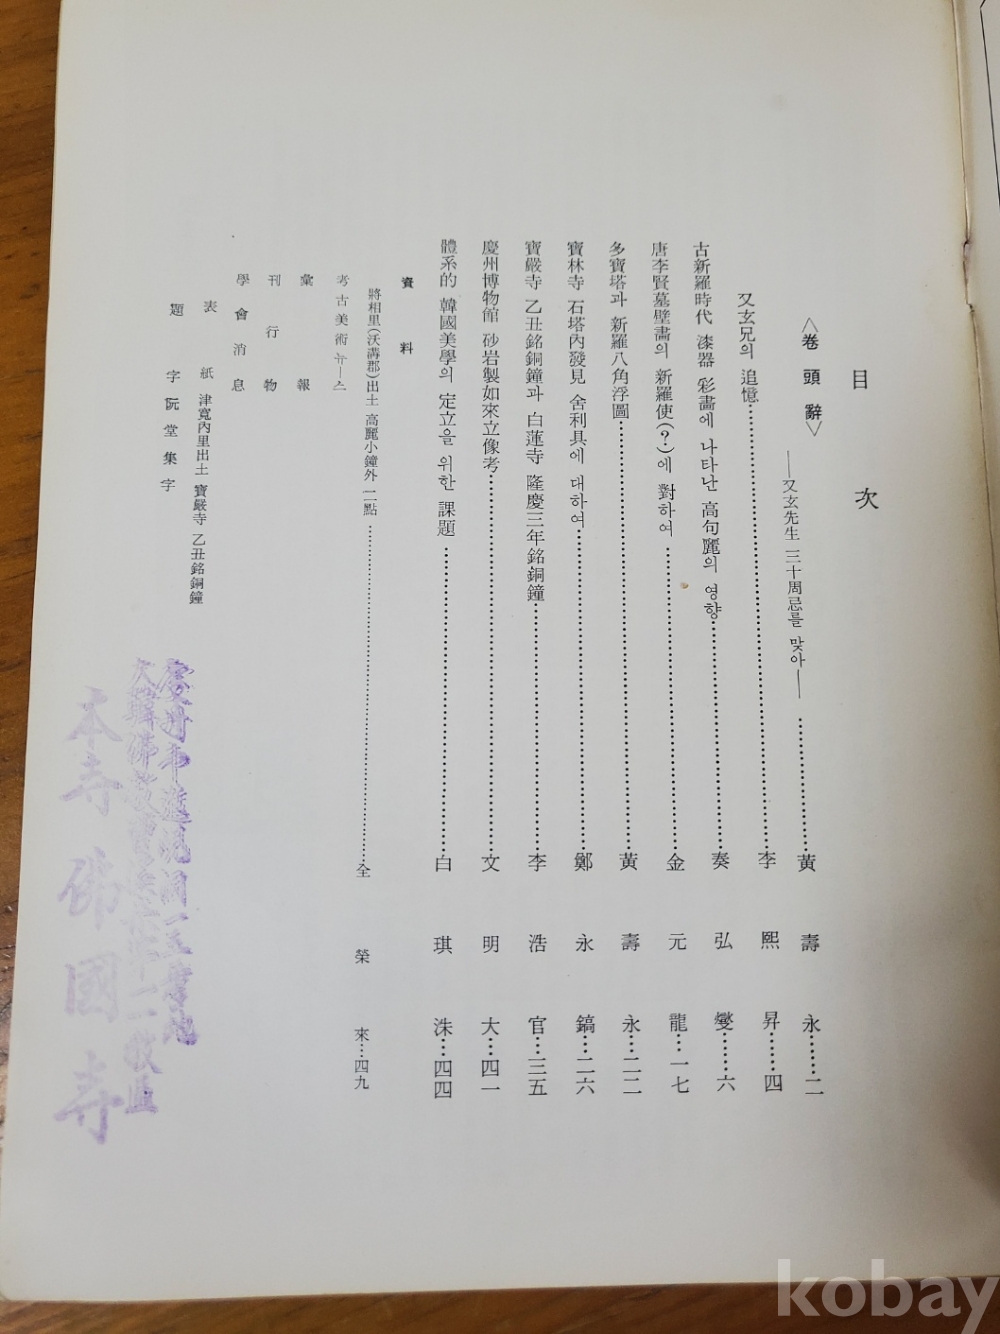 目次
〈卷頭辭〉 ―又玄先生 三十周忌를 맞아― 黃壽永……二
又玄兄의 追憶 李熙昇……四
古新羅時代 漆器 彩畵에 나타난 高句麗의 영향 秦弘燮……六
唐李賢墓壁畵의 新羅使(?)에 對하여 金元龍…一七
多寶塔과 新羅八角浮圖 黃壽永…二二
寶林寺 石塔內發見 舍利具에 대하여 鄭永鎬…二六
寶嚴寺 乙丑銘銅鐘과 白蓮寺 隆慶三年銘銅鐘 李浩官…三五
慶州博物館 砂岩製如來立像考 文明大…四一
體系的 韓國美學의 定立을 위한 課題 白琪洙…四四
資料
將相里(沃溝郡)出土 高麗小鐘外 二點 全榮來…四九
考古美術뉴―스
彙報
刊行物
學會消息
表紙 津寬內里出土 寶嚴寺 乙丑銘銅鐘
題字 阮堂集字
慶州市進峴洞一五番地
大韓佛敎曹溪宗第十一敎區
本寺 佛國寺
kobay